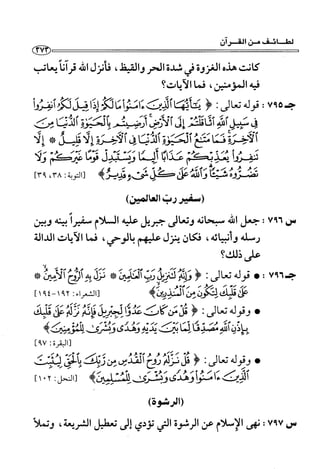 لطائف من القرآن
٢٧٣
كانت هذه الغزوة في شدة الحر والقيظ، فأنزل الله قرآناً يعاتب
فيه المؤمنين، فما الآيات؟
جـ ٧٩٥: قوله تعالى: ﴿ يَٰٓأَيُّهَا ٱلَّذِينَ ءَامَنُوا۟ مَا لَكُمْ إِذَا قِيلَ لَكُمُ ٱنفِرُوا۟
فِى سَبِيلِ ٱللَّهِ ٱثَّاقَلْتُمْ إِلَى ٱلْأَرْضِ أَرَضِيتُم بِٱلْحَيَوٰةِ ٱلدُّنْيَا مِنَ
ٱلْأَخِرَةِ فَمَا مَتَٰعُ ٱلْحَيَوٰةِ ٱلدُّنْيَا فِى ٱلْأَخِرَةِ إِلَّا قَلِيلٌ * إِلَّا
تَنفِرُوا۟ يُعَذِّبْكُمْ عَذَابًا أَلِيمًا وَيَسْتَبْدِلْ قَوْمًا غَيْرَكُمْ وَلَا
تَضُرُّوهُ شَيْـًٔا وَٱللَّهُ عَلَىٰ كُلِّ شَىْءٍ قَدِيرٌ ﴾ [التوبة: ٣٨، ٣٩]
(سفير ربّ العالمين)
س ٧٩٦: جعل الله سبحانه وتعالى جبريل عليه السلام سفيراً بينه وبين
رسله وأنبيائه، فكان ينزل عليهم بالوحي، فما الآيات الدالة
على ذلك؟
جـ ٧٩٦: • قوله تعالى: ﴿ وَإِنَّهُ لَتَنزِيلُ رَبِّ ٱلْعَٰلَمِينَ * نَزَلَ بِهِ ٱلرُّوحُ ٱلْأَمِينُ *
عَلَىٰ قَلْبِكَ لِتَكُونَ مِنَ ٱلْمُنذِرِينَ ﴾ [الشعراء: ١٩٢-١٩٤]
• وقوله تعالى: ﴿ قُلْ مَن كَانَ عَدُوًّا لِّجِبْرِيلَ فَإِنَّهُ نَزَّلَهُ عَلَىٰ قَلْبِكَ
بِإِذْنِ ٱللَّهِ مُصَدِّقًا لِّمَا بَيْنَ يَدَيْهِ وَهُدًى وَبُشْرَىٰ لِلْمُؤْمِنِينَ ﴾
[البقرة: ٩٧]
• وقوله تعالى: ﴿ قُلْ نَزَّلَهُ رُوحُ ٱلْقُدُسِ مِن رَّبِّكَ بِٱلْحَقِّ لِيُثَبِّتَ
ٱلَّذِينَ ءَامَنُوا۟ وَهُدًى وَبُشْرَىٰ لِلْمُسْلِمِينَ ﴾ [النحل: ١٠٢]
(الرشوة)
س ٧٩٧: نهى الإسلام عن الرشوة التي تؤدي إلى تعطيل الشريعة، وتملأ